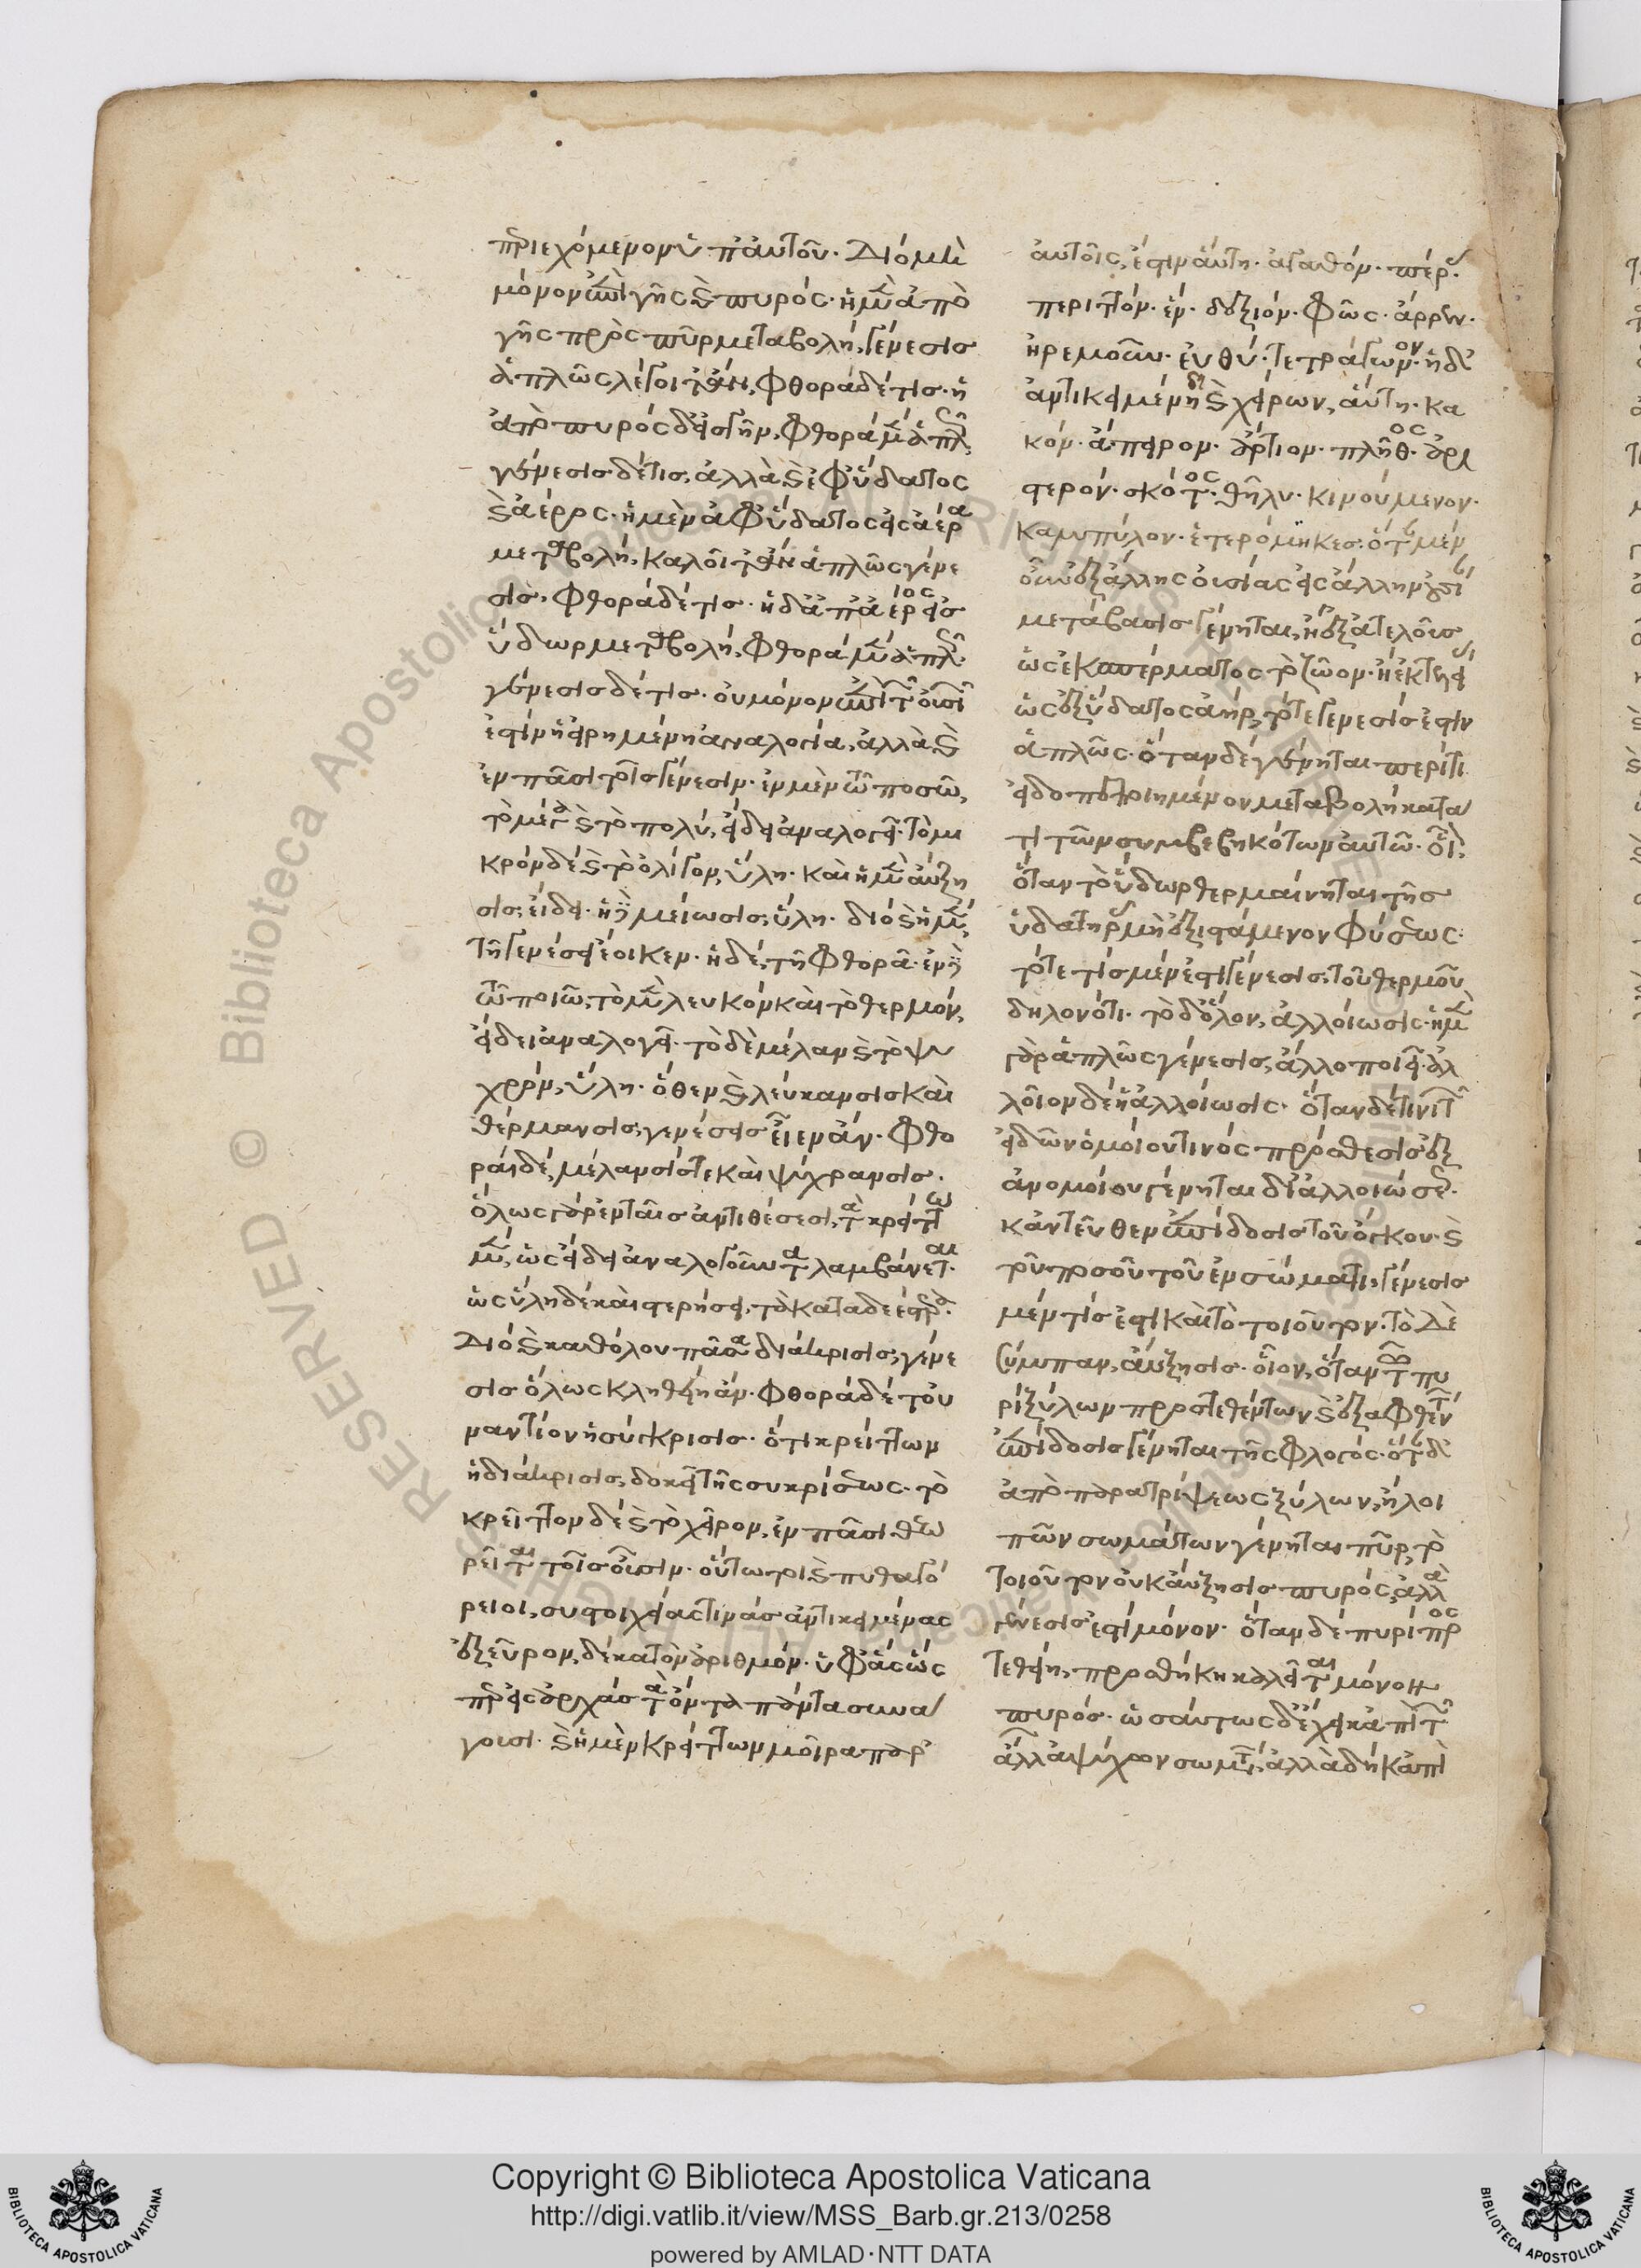 περιεχόμενον ὑπ' αὐτοῦ. Διὸ μὴ
μόνον ἐπὶ γῆς καὶ πυρός. ἡ μὲν ἀπὸ
γῆς πρὸς πῦρ μεταβολή, γένεσις
ἁπλῶς λέγοιτ' ἄν, φθορὰ δέ τις. ἡ
ἀπὸ πυρὸς δ' εἰς γῆν, φθορὰ μὲν ἁπλῶς,
γένεσις δέ τις, ἀλλὰ καὶ ἐφ' ὕδατος
καὶ ἀέρος. ἡ μὲν ἀφ' ὕδατος εἰς ἀέρα
μεταβολή, καλοῖτ' ἂν ἁπλῶς γένε
σις, φθορὰ δέ τις. ἡ δ' ἀπ' ἀέρος εἰς
ὕδωρ μεταβολή, φθορὰ μὲν ἁπλῶς.
γένεσις δέ τις. οὐ μόνον ἐπὶ τῶν οὐσιῶν
ἐστὶν ἡ εἰρημένη ἀναλογία, ἀλλὰ καὶ
ἐν πᾶσι τοῖς γένεσιν. ἐν μὲν τῷ ποσῷ,
τὸ μέγα καὶ τὸ πολύ, εἴδει ἀναλογεῖ. τὸ μι
κρὸν δὲ καὶ τὸ ὀλίγον, ὕλη. καὶ ἡ μὲν αὔξη
σις, εἴδει. ἡ δὲ μείωσις, ὕλη. διὸ καὶ ἡ μὲν,
τῇ γενέσει ἔοικεν. ἡ δέ, τῇ φθορᾷ. ἐν δὲ
τῷ ποιῷ, τὸ μὲν λευκὸν καὶ τὸ θερμόν,
εἴδει ἀναλογεῖ. τὸ δὲ μέλαν καὶ τὸ ψυ
χρόν, ὕλη. ὅθεν καὶ λεύκανσις καὶ
θέρμανσις, γενέσεις εἶεν ἄν. φθο
ραὶ δέ, μέλανσίς τε καὶ ψύχρανσις.
ὅλως γὰρ ἐν ταῖς ἀντιθέσεσι, τὰ κρείττω
μέν, ὡς εἴδει ἀναλογοῦντα λαμβάνεται.
ὡς ὕλη δὲ καὶ στερήσει, τὰ καταδεέστερα.
Διὸ καὶ καθόλου πᾶσα διάκρισις, γένε
σις ὅλως κληθείη ἄν. φθορὰ δὲ τοὐ
ναντίον ἡ σύγκρισις. ὅτι κρείττων
ἡ διάκρισις, δοκεῖ τῆς συγκρίσεως. τὸ
κρεῖττον δὲ καὶ τὸ χεῖρον, ἐν πᾶσι θεω
ρεῖται τοῖς οὖσιν. οὕτω τοι καὶ πυθαγό
ρειοι, συστοιχίας τινὰς ἀντικειμένας
ἐξεῦρον, δέκα τὸν ἀριθμόν. ὑφ' ἃς ὡς
περ εἰς ἀρχὰς τὰ ὄντα πάντα συνά
γουσι. καὶ ἡ μὲν κρείττων μοῖρα παρ'
αὐτοῖς, ἐστιν αὕτη. ἀγαθόν. πέρας.
περιττόν. ἕν. δεξιόν. φῶς. ἄρρεν.
ἠρεμοῦν. εὐθύ. τετράγωνον. ἡ δ'
ἀντικειμένη δὴ καὶ χείρων, αὕτη. κα
κόν. ἄπειρον. ἄρτιον. πλῆθος. ἀρι
στερόν. σκότος. θῆλυ. κινούμενον.
καμπύλον. ἑτερόμηκες. ὅταν μὲν
οὖν ἐξ ἄλλης οὐσίας εἰς ἄλλην οὐσίαν
μετάβασις γένηται, ἢ ἐξ ἀτελοῦς
ὡς ἐκ σπέρματος τὸ ζῶον. ἢ ἐκ τελείας
ὡς ἐξ ὕδατος ἀήρ, τότε γένεσίς ἐστιν
ἁπλῶς. ὅταν δὲ γένηται περί τι
εἰδοπεποιημένον μεταβολὴ κατά
τι τῶν συμβεβηκότων αὐτῷ. οἷον,
ὅταν τὸ ὕδωρ θερμαίνηται τῆς
ὕδατος μὴ ἐξιστάμενον φύσεως.
τότε τὶς μέν ἐστι γένεσις, τοῦ θερμοῦ
δηλονότι. τὸ δ' ὅλον, ἀλλοίωσις. ἡ μὲν
γὰρ ἁπλῶς γένεσις, ἄλλο ποιεῖ. ἀλ
λοῖον δὲ ἡ ἀλλοίωσις. ὅταν δέ τινι τῶν
εἰδῶν ὁμοίου τινὸς πρόσθεσις ἐξ
ἀνομοίου γένηται δι' ἀλλοιώσεως.
κἀντεῦθεν ἐπίδοσις τοῦ ὄγκου. καὶ
τοῦ ποσοῦ τοῦ ἐν σώματι, γένεσις
μέν τίς ἐστι καὶ τὸ τοιοῦτον. τὸ δὲ
σύμπαν, αὔξησις. οἷον, ὅταν τῷ πυ
ρὶ ξύλων προστεθέντων καὶ ἐξαφθέντων
ἐπίδοσις γένηται τῆς φλογός. ὅταν δ'
ἀπὸ παρατρίψεως ξύλων, ἢ λοι
πῶν σωμάτων γένηται πῦρ, τὸ
τοιοῦτον οὐκ αὔξησις πυρός, ἀλλὰ
γένεσίς ἐστι μόνον. ὅταν δὲ πυρὶ πῦρ
τεθείη, προσθήκη καλεῖται μόνον
πυρός. ὡσαύτως δ' ἔχει κἀπὶ τῶν
ἄλλων ἀψύχων σωμάτων, ἀλλὰ δὴ κἀπὶ
Copyright © Biblioteca Apostolica Vaticana
http://digi.vatlib.it/view/MSS_Barb.gr.213/0258
powered by AMLAD·NTT DATA